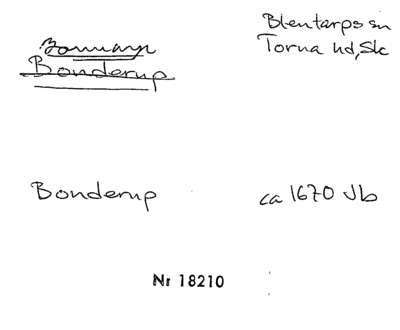 Blentarps sn
Torna hd, Sk
Bonderup
Bonderup ca 1670 Jb
Nr 18210